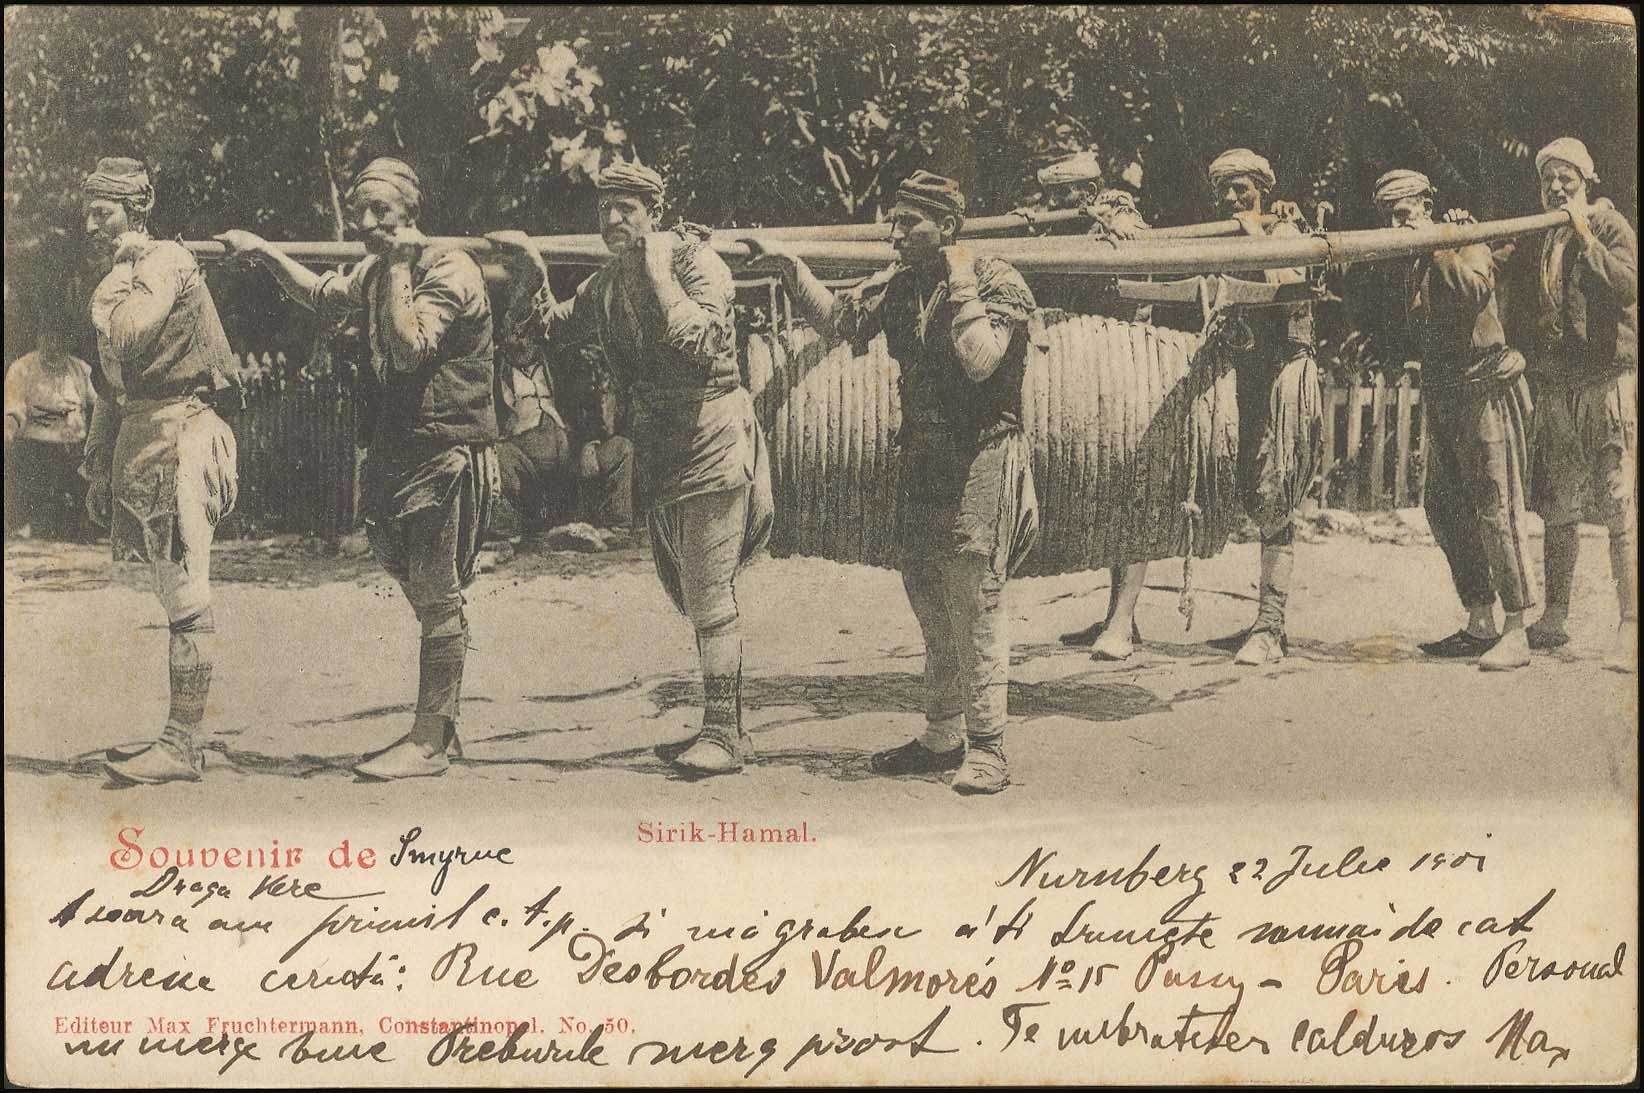 Sirik-Hamal.
Souvenir de Smyrne
Nurnberg 22 Julie 1901
Draga Vere
Aseara am primit c. t. p. si mă graben a'ti trimete numai de cat
adresa ceruta: Rue Desbordes Valmores No 15 Passy - Paris. Personal
Editeur Max Fruchtermann, Constantinopel. No. 50.
nu merge bine Treburile merg prost. Te imbratisez calduros Max